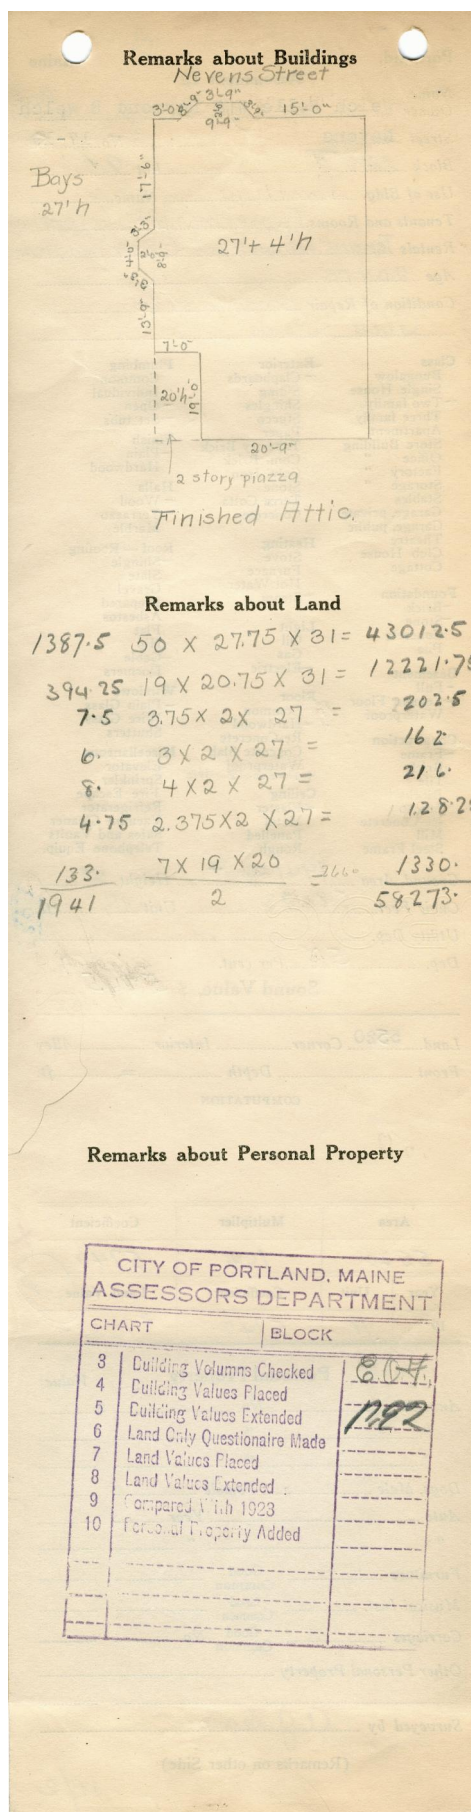 Remarks about Buildings
Nevens Street
3'-0" 3'-9" 15'-0"
9'-9"
Bays
27'h
17'-6"
4'-0" 8'-9"
27'+ 4'h
13'-9"
7'-0"
20'h 19'-0"
20'-9"
2 story piazza
Finished Attic.
Remarks about Land
1387.5 50 X 27.75 X 31 = 43012.5
394.25 19 X 20.75 X 31 = 12221.75
7.5 3.75 X 2 X 27 = 202.5
6. 3 X 2 X 27 = 162
8. 4 X 2 X 27 = 216.
4.75 2.375 X 2 X 27 = 128.25
133. 7 X 19 X 20 = 2660 1330.
1941 2 58273.
Remarks about Personal Property
CITY OF PORTLAND, MAINE
ASSESSORS DEPARTMENT
CHART BLOCK
3 Building Volumns Checked
4 Building Values Placed
5 Building Values Extended
6 Land Only Questionaire Made
7 Land Values Placed
8 Land Values Extended
9 Compared With 1923
10 Personal Property Added